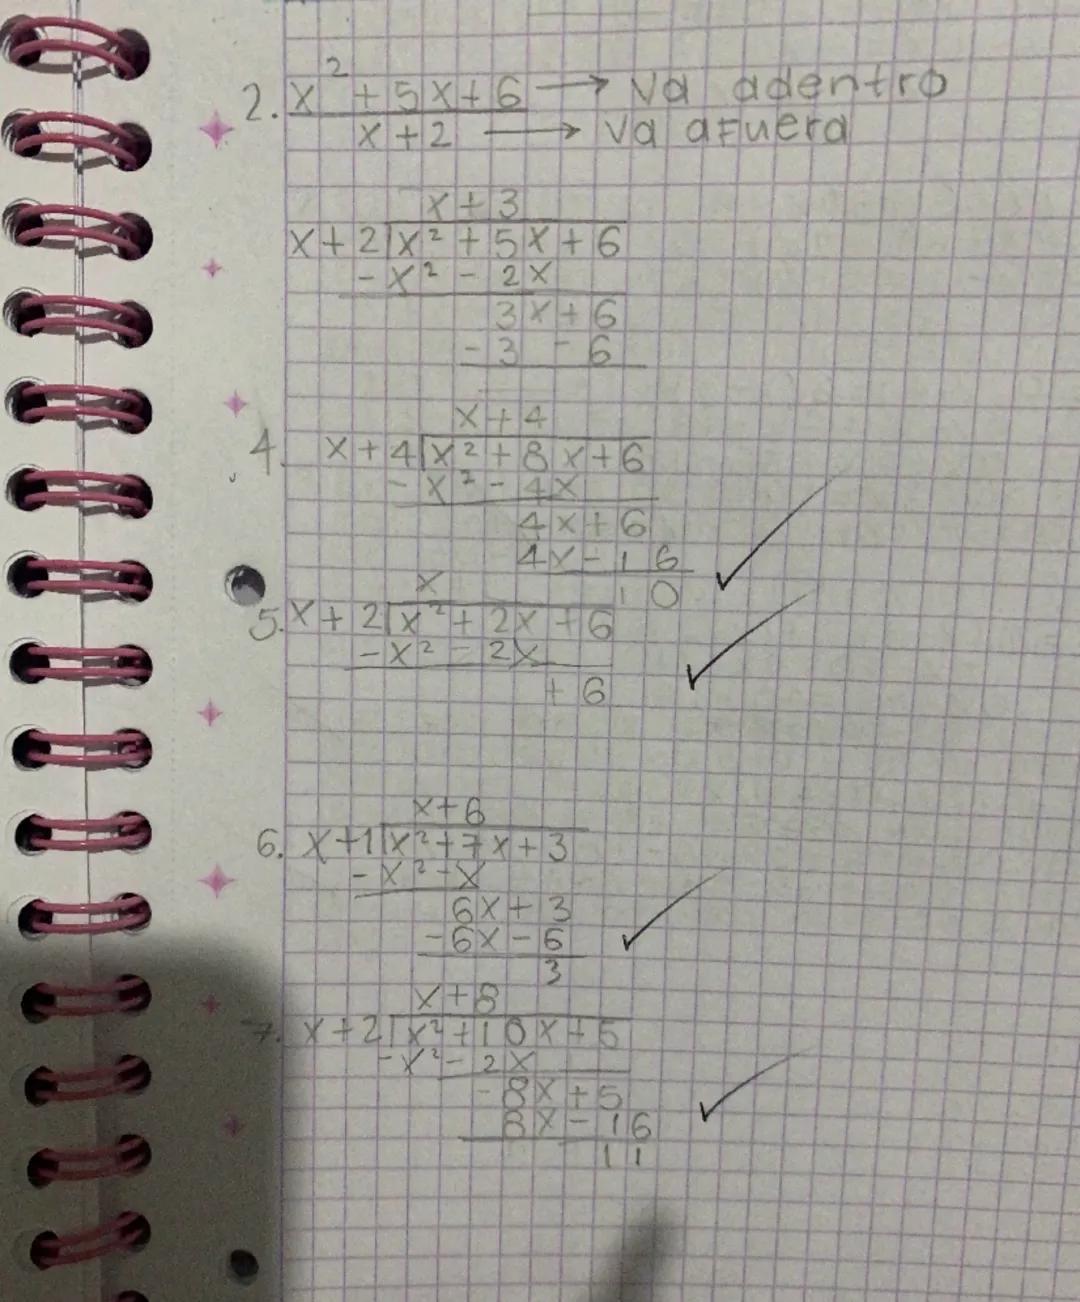 2. x² + 5x + 6 → va adentro
x + 2 → va afuera
x + 3
x + 2 | x² + 5x + 6
- x² - 2x
3x + 6
- 3 - 6
x + 4
4. x + 4 | x² + 8x + 6
- x² - 4x
4x + 6
4x - 16
10
x
5. x + 2 | x² + 2x + 6
- x² - 2x
+ 6
x + 6
6. x + 1 | x² + 7x + 3
- x² - x
6x + 3
- 6x - 6
3
x + 8
7. x + 2 | x² + 10x + 5
- x² - 2x
- 8x + 5
8x - 16
11